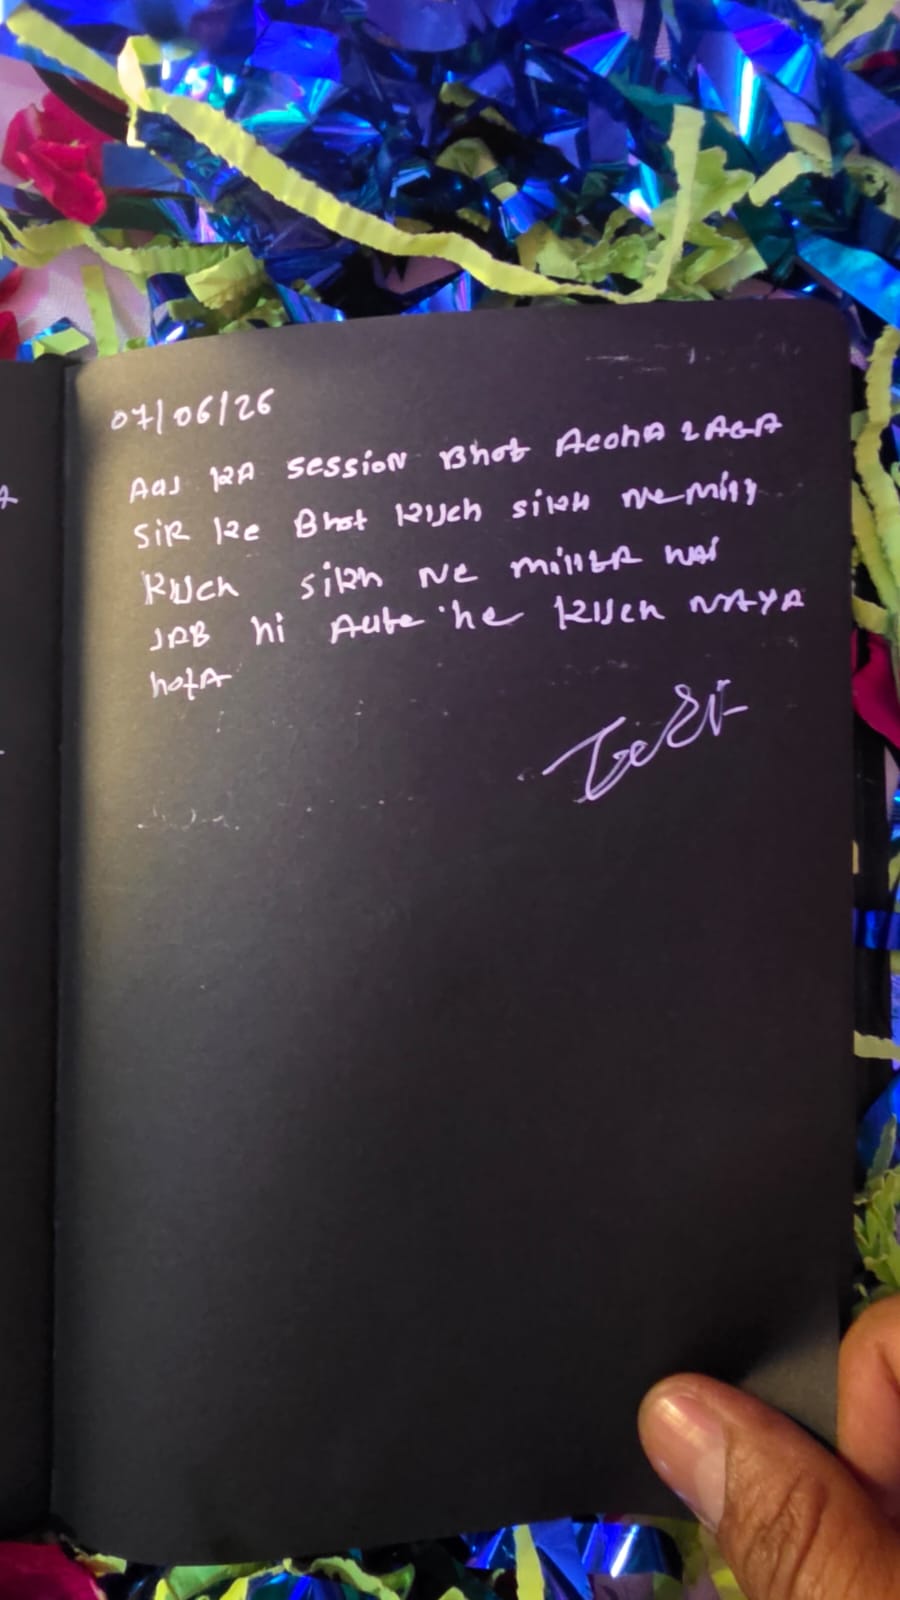 07/06/26
Aaj KA session Bhot AcchA LAGA
SiR Ke Bhot KUch sikh Ne mily
KUch sikh Ne millta hai
JAB hi Aate he KUch NAYA
hotA